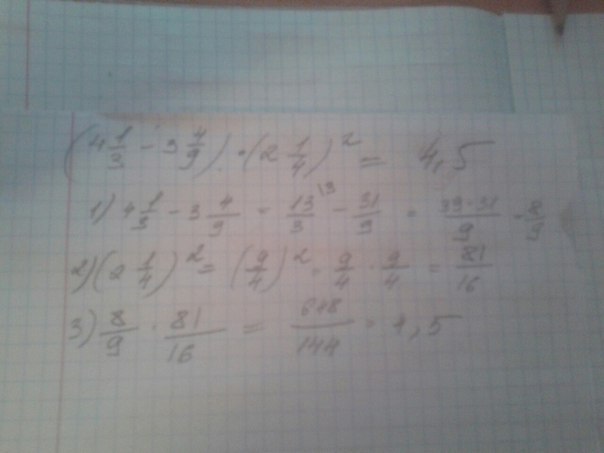 (4 1/3 - 3 4/9) · (2 1/4)² = 4,5
1) 4 1/3 - 3 4/9 = 13/3 ^(3 - 31/9 = (39-31)/9 = 8/9
2) (2 1/4)² = (9/4)² = 9/4 · 9/4 = 81/16
3) 8/9 · 81/16 = 648/144 = 4,5